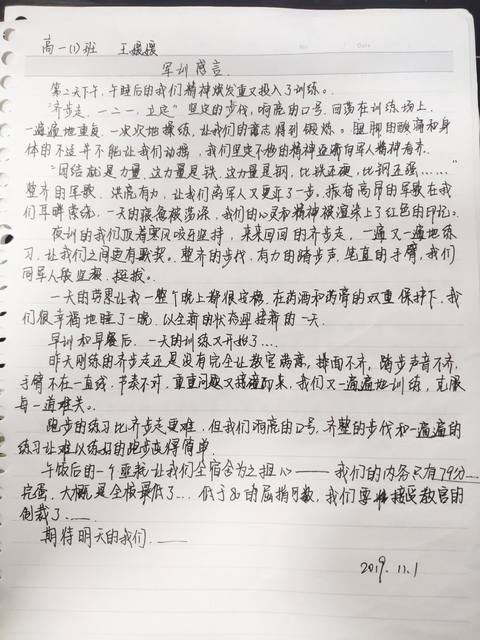 No.
Date
高一(1)班 王媛媛
军训感言
第二天下午,午睡后的我们精神焕发重又投入了训练。
“齐步走,一二一,立定”坚定的步伐,响亮的口号,回荡在训练场上,
一遍遍地重复,一次次地操练,让我们的意志得到锻炼。腿脚的酸痛和身
体的不适并不能让我们动摇,我们坚定不移的精神正满向军人精神看齐.
“团结就是力量,这力量是铁,这力量是钢,比铁还硬,比钢还强……”
整齐的军歌,洪亮有力,让我们离军人又更近了一步,振奋高昂的军歌在我
们耳畔萦绕,一天的疲惫被荡涤,我们的心灵和精神被渲染上了红色的印记。
夜训的我们顶着寒风咬牙坚持,来来回回的齐步走,一遍又一遍地练
习,让我们之间更有默契。整齐的步伐,有力的踏步声,笔直的手臂,我们
同军人般坚毅、挺拔。
一天的劳累让我一整个晚上都很安稳,在药酒和药膏的双重保护下,我
们很幸福地睡了一晚,以全新的状态迎接新的一天.
早训和早餐后,一天的训练又开始了…
昨天刚练的齐步走还是没有完全让教官满意,排面不齐,踏步声音不齐,
手臂不在一直线,节奏不对,重重问题又接踵而来,我们又一遍遍地训练,克服
每一道难关。
跑步的练习比齐步走更难,但我们响亮的口号,齐整的步伐和一遍遍的
练习让难以练好的跑步变得简单.
午饭后的一个噩耗让我们全宿舍为之担心——我们的内务只有79分…
完蛋,大概是全校最低了…低于80的屈指可数,我们要接受教官的
制裁了……
期待明天的我们.——
2019.11.1